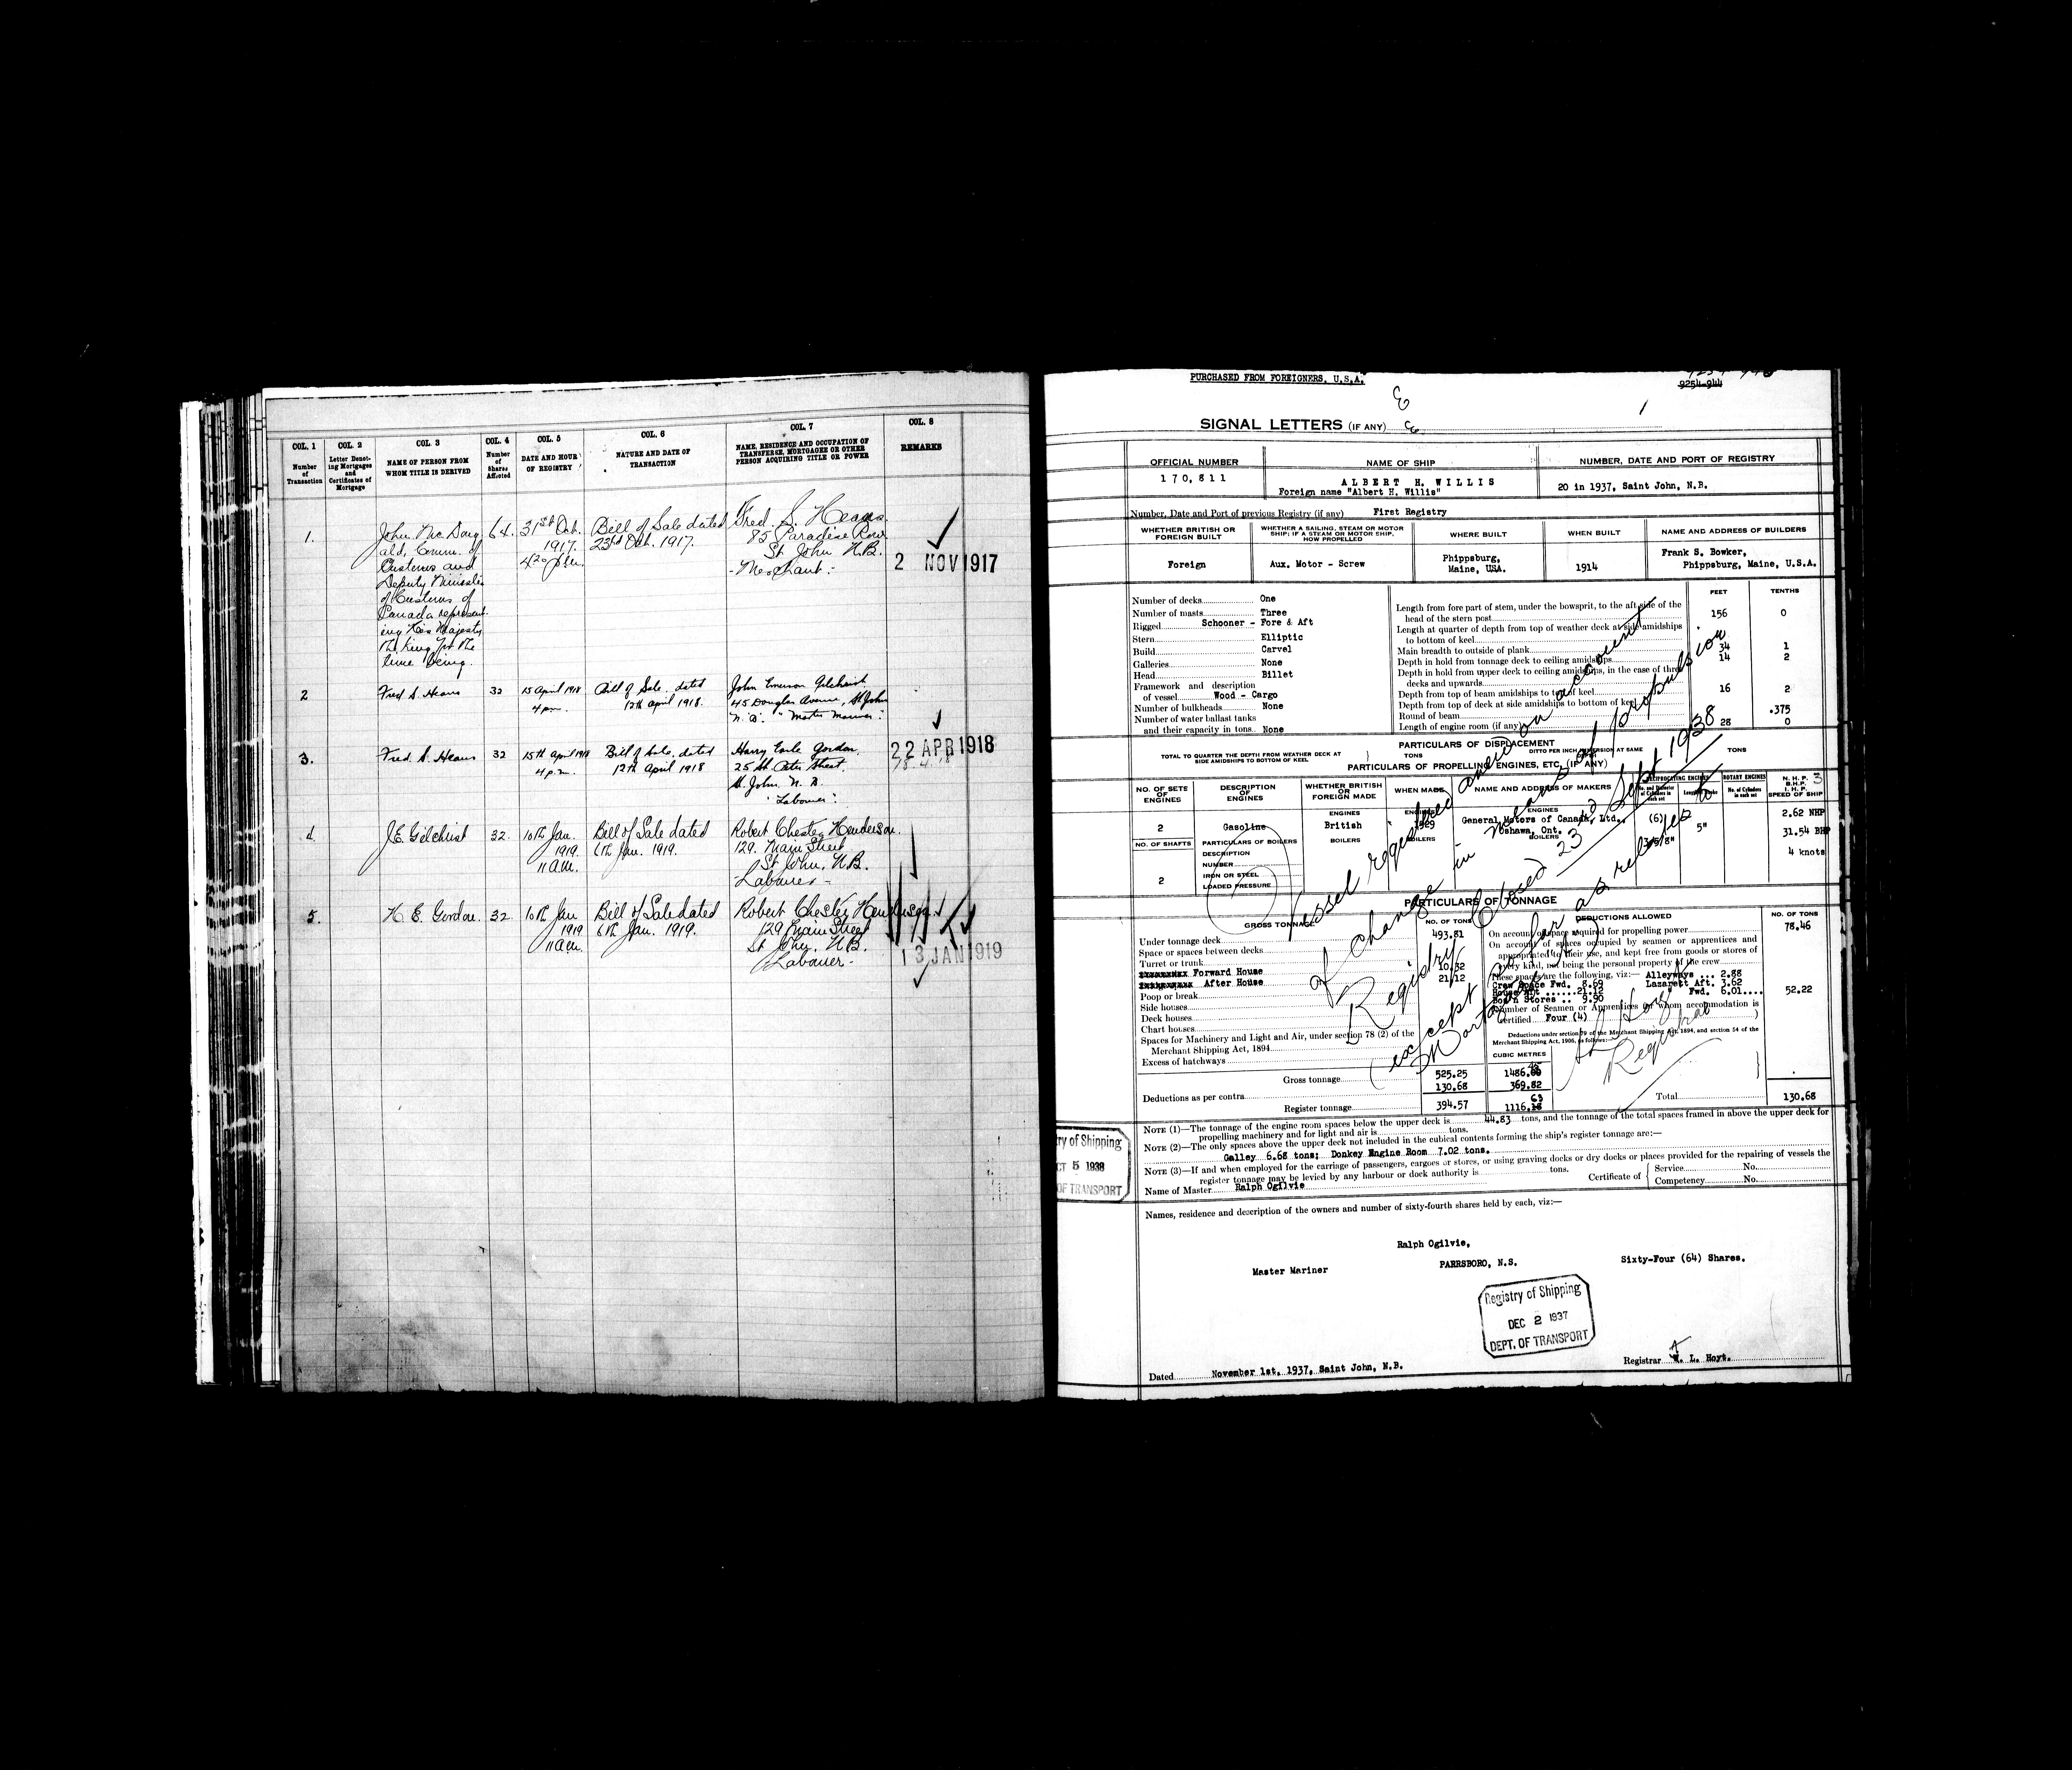 COL. 1
Number
of
Transaction
COL. 2
Letter Denot-
ing Mortgages
and
Certificates of
Mortgage
COL. 3
NAME OF PERSON FROM
WHOM TITLE IS DERIVED
COL. 4
Number
of
Shares
Affected
COL. 5
DATE AND HOUR
OF REGISTRY
COL. 6
NATURE AND DATE OF
TRANSACTION
COL. 7
NAME, RESIDENCE AND OCCUPATION OF
TRANSFEREE, MORTGAGEE OR OTHER
PERSON ACQUIRING TITLE OR POWER
COL. 8
REMARKS
1.
John Mc Doug
ald, Comm. of
Customs and
Deputy Minister
of Customs of
Canada represent
ing His Majesty
the King for the
time being.
64.
31st Oct.
1917.
4 20 p.m.
Bill of Sale dated
23rd Oct. 1917.
Fred. S. Heans
85 Paradise Row
St. John N.B.
- Merchant -
2 NOV 1917
2
Fred S. Heans
32
15 April 1918
4 p.m.
Bill of Sale dated
12th April 1918.
John Emerson Gilchrist
45 Douglas Avenue, St John
N. B. "Master Mariner"
3.
Fred. S. Heans
32
15th April 1918
4 p.m.
Bill of Sale dated
12th April 1918
Harry Earle Gordon
25 St. Peter Street,
St. John N. B.
"Labourer"
22 APR 1918
4
J.E. Gilchrist
32.
10th Jan.
1919.
11 a.m.
Bill of Sale dated
6th Jan. 1919.
Robert Chester Henderson.
129. Main Street
St. John, N.B.
- Labourer -
5.
H. E. Gordon.
32.
10th Jan
1919
11 a.m.
Bill of Sale dated
6th Jan. 1919.
Robert Chester Henderson
129 Main Street
St John, N.B.
Labourer -
13 JAN 1919
PURCHASED FROM FOREIGNERS, U.S.A.
9254-944
SIGNAL LETTERS (IF ANY)
OFFICIAL NUMBER
170,811
NAME OF SHIP
ALBERT H. WILLIS
Foreign name "Albert H. Willis"
NUMBER, DATE AND PORT OF REGISTRY
20 in 1937, Saint John, N.B.
Number, Date and Port of previous Registry (if any) First Registry
WHETHER BRITISH OR
FOREIGN BUILT
Foreign
WHETHER A SAILING, STEAM OR MOTOR
SHIP; IF A STEAM OR MOTOR SHIP,
HOW PROPELLED
Aux. Motor - Screw
WHERE BUILT
Phippsburg,
Maine, USA.
WHEN BUILT
1914
NAME AND ADDRESS OF BUILDERS
Frank S. Bowker,
Phippsburg, Maine, U.S.A.
Number of decks One
Number of masts Three
Rigged Schooner - Fore & Aft
Stern Elliptic
Build Carvel
Galleries None
Head Billet
Framework and description
of vessel Wood - Cargo
Number of bulkheads None
Number of water ballast tanks
and their capacity in tons None
FEET
TENTHS
Length from fore part of stem, under the bowsprit, to the aft side of the
head of the stern post 156 0
Length at quarter of depth from top of weather deck at side amidships
to bottom of keel
Main breadth to outside of plank 34 1
Depth in hold from tonnage deck to ceiling amidships 14 2
Depth in hold from upper deck to ceiling amidships, in the case of three
decks and upwards
Depth from top of beam amidships to top of keel 16 2
Depth from top of deck at side amidships to bottom of keel
Round of beam .375
Length of engine room (if any) 28 0
PARTICULARS OF DISPLACEMENT
TOTAL TO QUARTER THE DEPTH FROM WEATHER DECK AT
SIDE AMIDSHIPS TO BOTTOM OF KEEL
TONS
DITTO PER INCH IMMERSION AT SAME
TONS
PARTICULARS OF PROPELLING ENGINES, ETC. (IF ANY)
NO. OF SETS
OF
ENGINES
2
NO. OF SHAFTS
2
DESCRIPTION
OF
ENGINES
Gasoline
PARTICULARS OF BOILERS
DESCRIPTION
NUMBER
IRON OR STEEL
LOADED PRESSURE
WHETHER BRITISH
OR
FOREIGN MADE
ENGINES
British
BOILERS
WHEN MADE
ENGINES
1929
BOILERS
NAME AND ADDRESS OF MAKERS
ENGINES
General Motors of Canada, Ltd.,
Oshawa, Ont.
BOILERS
RECIPROCATING ENGINES
(6)
3/5/8"
5"
ROTARY ENGINES
No. of Cylinders
in each set
N. H. P. 3
B.H.P.
I. H. P.
SPEED OF SHIP
2.62 NHP
31.54 BHP
4 knots
Vessel registered anew on account
of change in means of propulsion
Registry Closed 23rd Sept 1938
(except so far as relates to
Mortgage)
Registrar
PARTICULARS OF TONNAGE
GROSS TONNAGE
NO. OF TONS
Under tonnage deck 493.81
Space or spaces between decks
Turret or trunk
Forward House 10.32
After House 21.12
Poop or break
Side houses
Deck houses
Chart houses
Spaces for Machinery and Light and Air, under section 78 (2) of the
Merchant Shipping Act, 1894
Excess of hatchways
Gross tonnage 525.25
Deductions as per contra 130.68
Register tonnage 394.57
DEDUCTIONS ALLOWED
NO. OF TONS
On account of space required for propelling power 78.46
On account of spaces occupied by seamen or apprentices and
appropriated to their use, and kept free from goods or stores of
every kind, not being the personal property of the crew
These spaces are the following, viz:— Alleyways ... 2.88
Crew Space Fwd. 8.69 Lazarett Aft. 3.62
House Aft ......21.12 Fwd. 6.01....
Bos'n Stores .. 9.90
52.22
Number of Seamen or Apprentices for whom accommodation is
certified Four (4)
Deductions under section 79 of the Merchant Shipping Act, 1894, and section 54 of the
Merchant Shipping Act, 1906, as follows:—
CUBIC METRES
369.82
Total 130.68
NOTE (1)—The tonnage of the engine room spaces below the upper deck is 44.83 tons, and the tonnage of the total spaces framed in above the upper deck for
propelling machinery and for light and air is tons.
NOTE (2)—The only spaces above the upper deck not included in the cubical contents forming the ship's register tonnage are:—
Galley 6.68 tons; Donkey Engine Room 7.02 tons.
NOTE (3)—If and when employed for the carriage of passengers, cargoes or stores, or using graving docks or dry docks or places provided for the repairing of vessels the
register tonnage may be levied by any harbour or dock authority is tons.
Name of Master Ralph Ogilvie
Certificate of
Service No.
Competency No.
ry of Shipping
CT 5 1938
OF TRANSPORT
Names, residence and description of the owners and number of sixty-fourth shares held by each, viz:—
Ralph Ogilvie,
Master Mariner
PARRSBORO, N.S.
Sixty-Four (64) Shares.
Registry of Shipping
DEC 2 1937
DEPT. OF TRANSPORT
Dated November 1st, 1937, Saint John, N.B.
Registrar L. Hoyt.